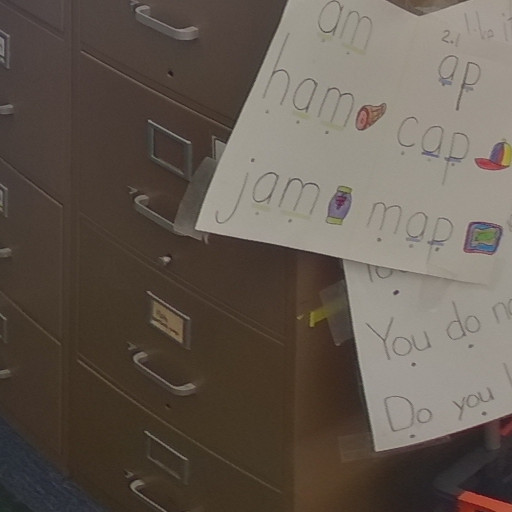 am
ham
jam
ap
cap
map
You do
Do you